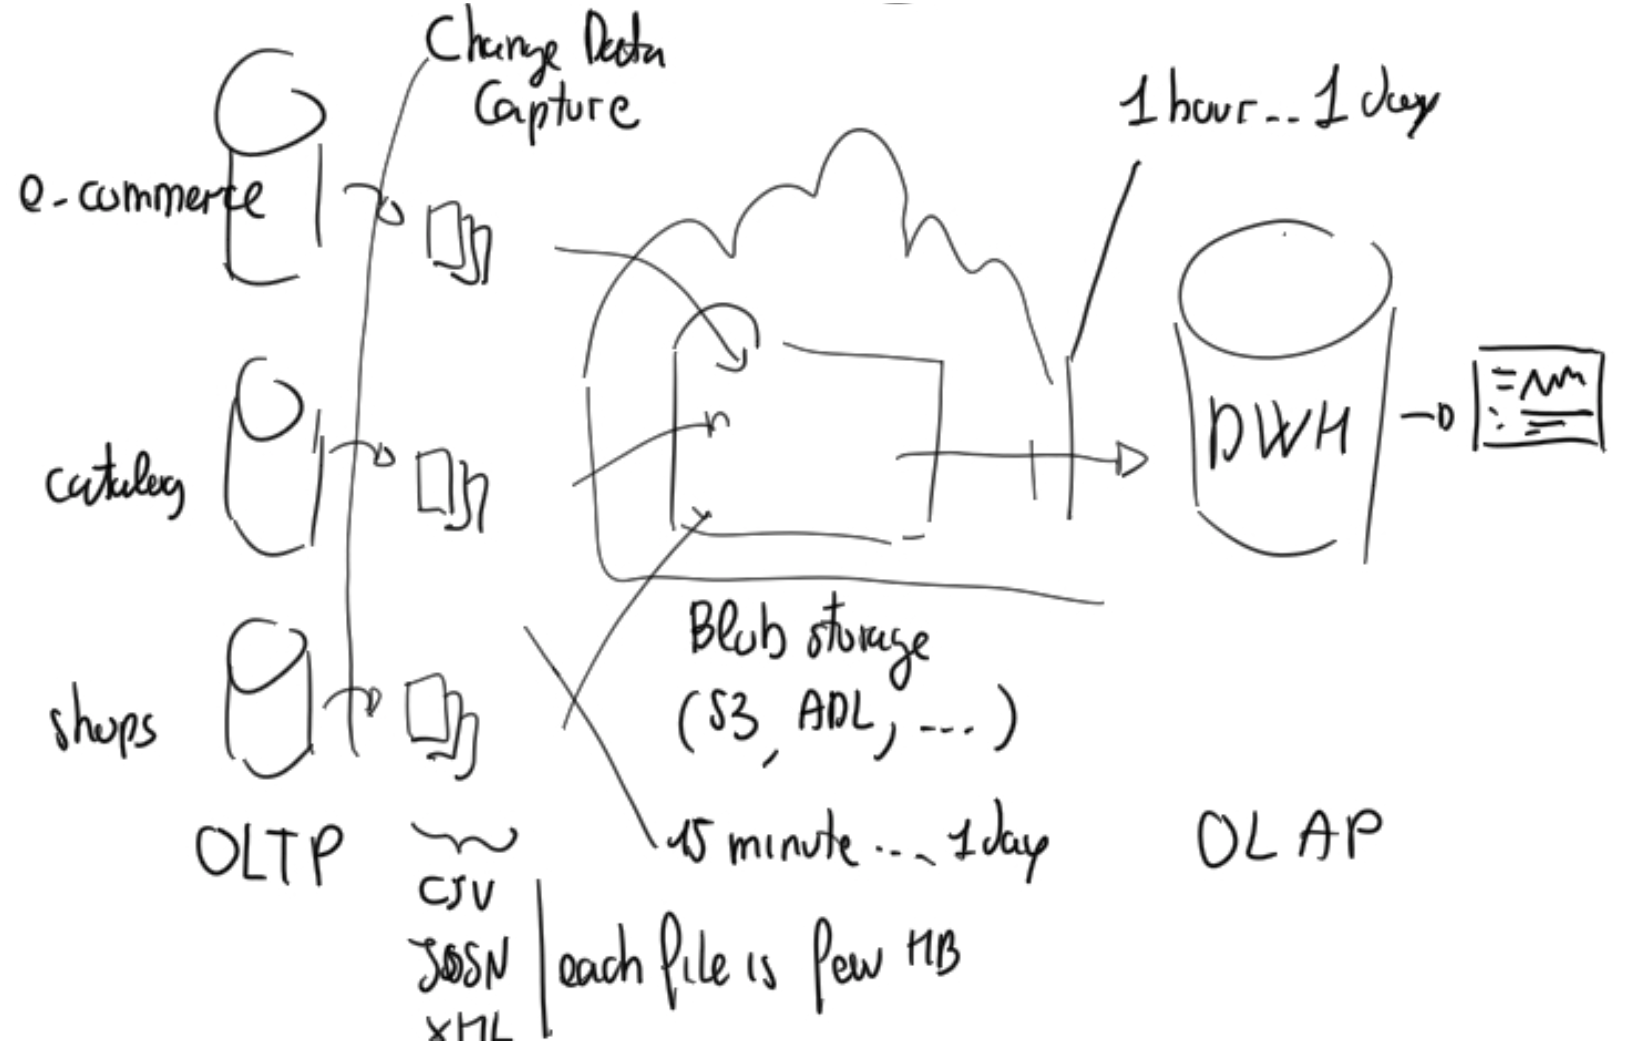 Change Data
Capture
1 hour... 1 day
e-commerce
catalog
DWH
shops
Blob storage
(S3, ADL, ....)
OLTP
15 minute.... 1 day
OLAP
CSV
JOSN
XML
each file is few MB